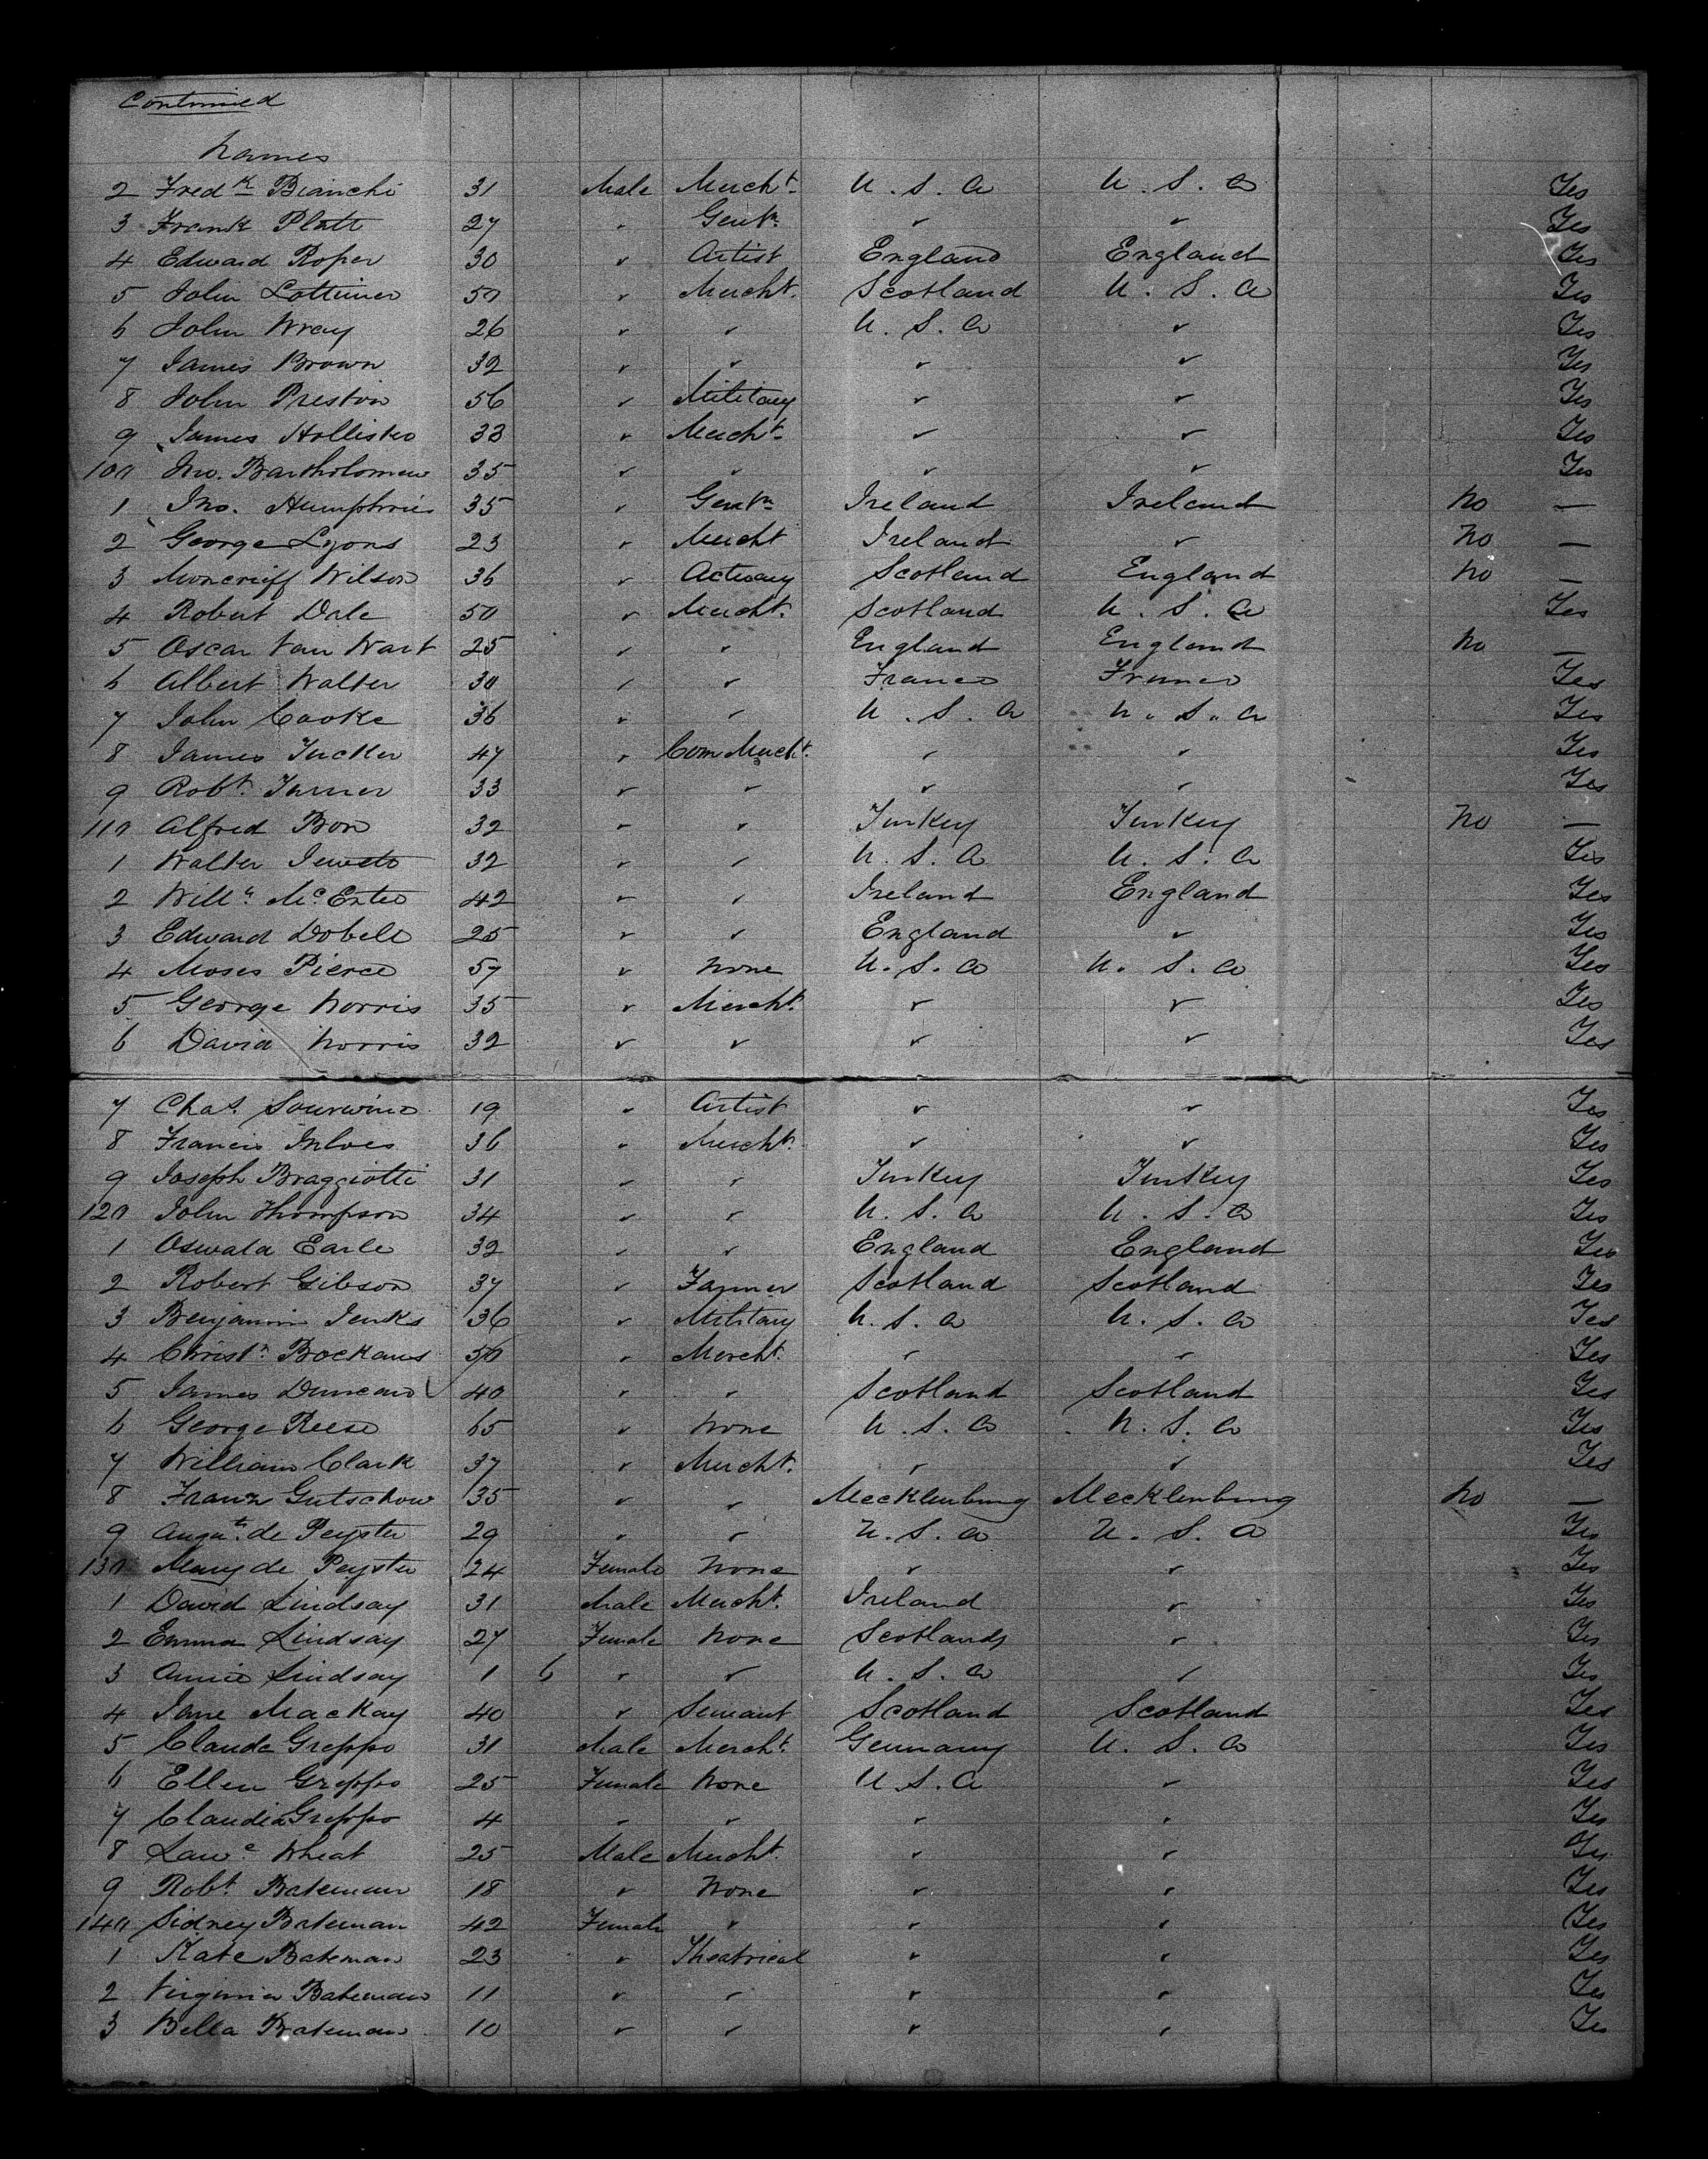 Continued
Names
2 Fredk Bianchi 31 Male Mercht. U. S. A U. S. A Yes
3 Frank Platt 27 " Gentn. " " Yes
4 Edward Roper 30 " Artist England England Yes
5 John Lottimer 50 " Mercht. Scotland U. S. A Yes
6 John Wray 26 " " U. S. A " Yes
7 James Brown 32 " " " " Yes
8 John Preston 56 " Military " " Yes
9 James Hollister 33 " Mercht. " " Yes
100 Jno. Bartholomew 35 " " " " Yes
1 Jno. Humphries 35 " Gentn Ireland Ireland No —
2 George Lyons 23 " Mercht Ireland " No —
3 Moncrieff Wilson 36 " Actuary Scotland England No —
4 Robert Dale 50 " Mercht. Scotland U. S. A Yes
5 Oscar Van Wart 25 " " England England No —
6 Albert Walter 30 " " France France Yes
7 John Cooke 36 " " U. S. A U. S. A Yes
8 James Tucker 47 " Com Mercht. " " Yes
9 Robt. Turner 33 " " " " Yes
110 Alfred Bon 32 " " Turkey Turkey No —
1 Walter 32 " " U. S. A U. S. A Yes
2 Willm. McEntee 42 " " Ireland England Yes
3 Edward Dobell 25 " " England " Yes
4 Moses Pierce 57 " None U. S. A U. S. A Yes
5 George Norris 35 " Mercht. " " Yes
6 David Norris 32 " " " " Yes
7 Chas. Sourwine 19 " Artist " " Yes
8 Francis Inloes 36 " Mercht. " " Yes
9 Joseph Braggiotti 31 " " Turkey Turkey Yes
120 John Thompson 34 " " U. S. A U. S. A Yes
1 Oswald Earle 32 " " England England Yes
2 Robert Gibson 37 " Farmer Scotland Scotland Yes
3 Benjamin Jenks 36 " Military U. S. A U. S. A Yes
4 Christr. 50 " Mercht. " " Yes
5 James Duncan 40 " " Scotland Scotland Yes
6 George Reese 65 " None U. S. A U. S. A Yes
7 William Clark 37 " Mercht. " " Yes
8 Franz Gutschow 35 " " Mecklenburg Mecklenburg No —
9 Augts. de Peyster 29 " " U. S. A U. S. A Yes
130 Mary de Peyster 24 Female None " " Yes
1 David Lindsay 31 Male Mercht. Ireland " Yes
2 Emma Lindsay 27 Female None Scotland " Yes
3 Annie Lindsay 1 6 " " U. S. A " Yes
4 Jane MacKay 40 " Servant Scotland Scotland Yes
5 Claude Greppo 31 Male Mercht. Germany U. S. A Yes
6 Ellen Greppo 25 Female None U. S. A " Yes
7 Claudia Greppo 4 " " " " Yes
8 Lawce Wheat 25 Male Mercht. " " Yes
9 Robt. Bateman 18 " None " " Yes
140 Sidney Bateman 42 Female " " " Yes
1 Kate Bateman 23 " Theatrical " " Yes
2 Virginia Bateman 11 " " " " Yes
3 Bella Bateman 10 " " " " Yes